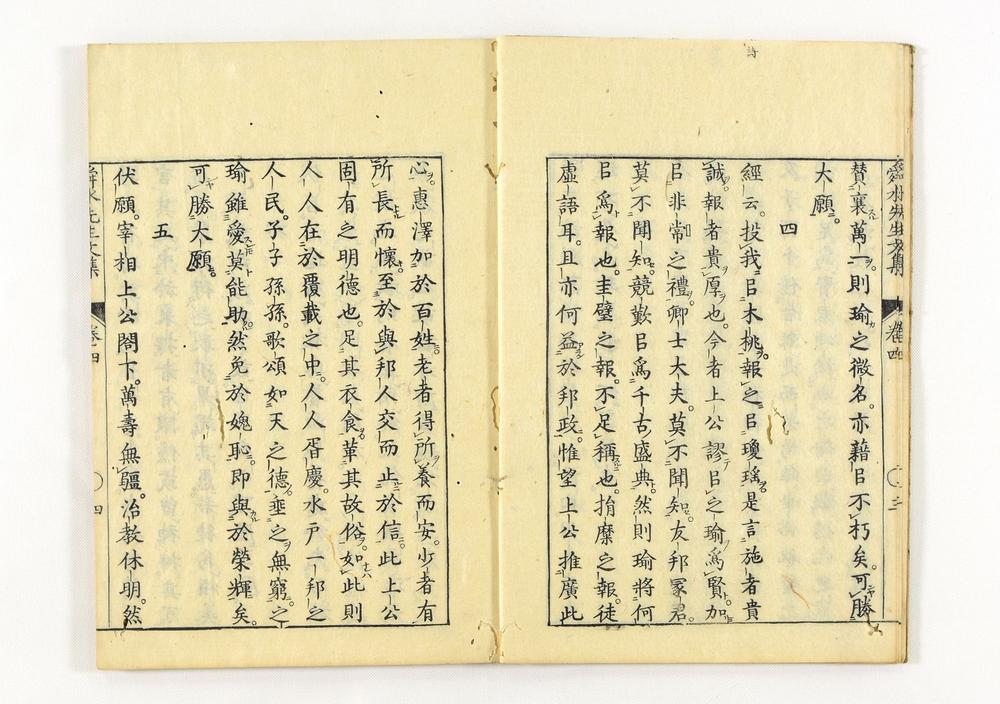 詩
舜水先生文集 卷四 三
贊襄萬一則瑜之微名。亦藉㠯不朽矣。可勝
大願。
四
經云。投我㠯木桃。報之㠯瓊瑤。是言施者貴
誠。報者貴厚也。今者上公謬㠯之瑜爲賢。加
㠯非常之禮。卿士大夫。莫不聞知。友邦冢君。
莫不聞知。競歎㠯爲千古盛典。然則瑜將何
㠯爲報也。圭璧之報。不足稱也。捐糜之報。徒
虛語耳。且亦何益於邦政。惟望上公推廣此
心。惠澤加於百姓。老者得所養而安。少者有
所長而懷。至於與邦人交而止於信。此上公
固有之明德也。足其衣食。革其故俗。如此則
人人在於覆載之中。人人胥慶。水戸一邦之
人民。子子孫孫。歌頌如天之德。垂之無窮。之
瑜雖愛莫能助。然免於媿恥。即與於榮輝矣。
可勝大願。
五
伏願。宰相上公閤下。萬壽無疆。治教休明。然
舜水先生文集 卷四 四